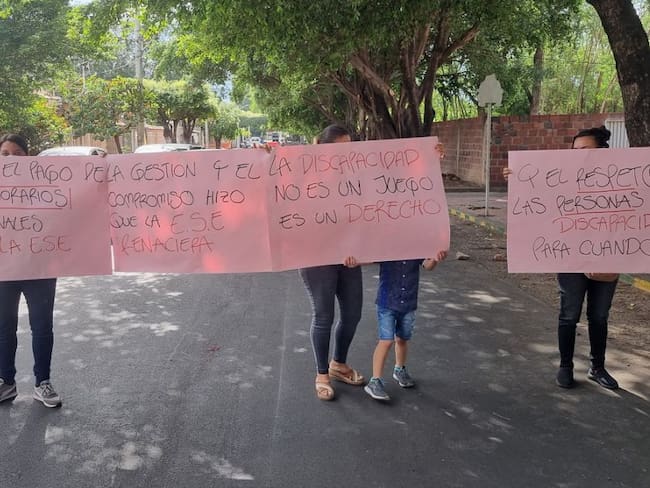 EL PAGO DE
ORARIOS!
NALES
LA ESE
LA GESTION Y EL
COMPROMISO HIZO
QUE LA E.S.E
RENACIERA
LA DISCAPACIDAD
NO ES UN JUEGO
ES UN DERECHO
Y EL RESPETO
LAS PERSONAS
DISCAPACID
PARA CUANDO